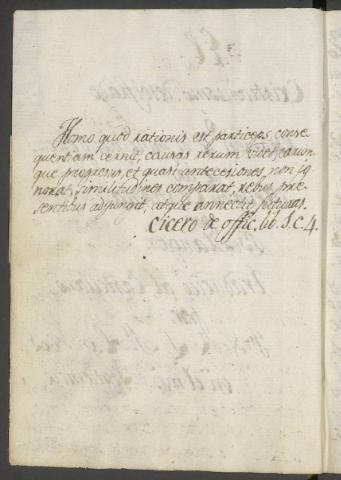 Homo quod rationis est particeps, conse-
quentiam cernit, causas rerum videt, earum-
que progresus, et quasi antecesiones, non ig
norat, similitudines comparat, rebus pre-
sentibus adjungit, atque annectit futuras.
Cicero de offic. lib. I. c. 4.